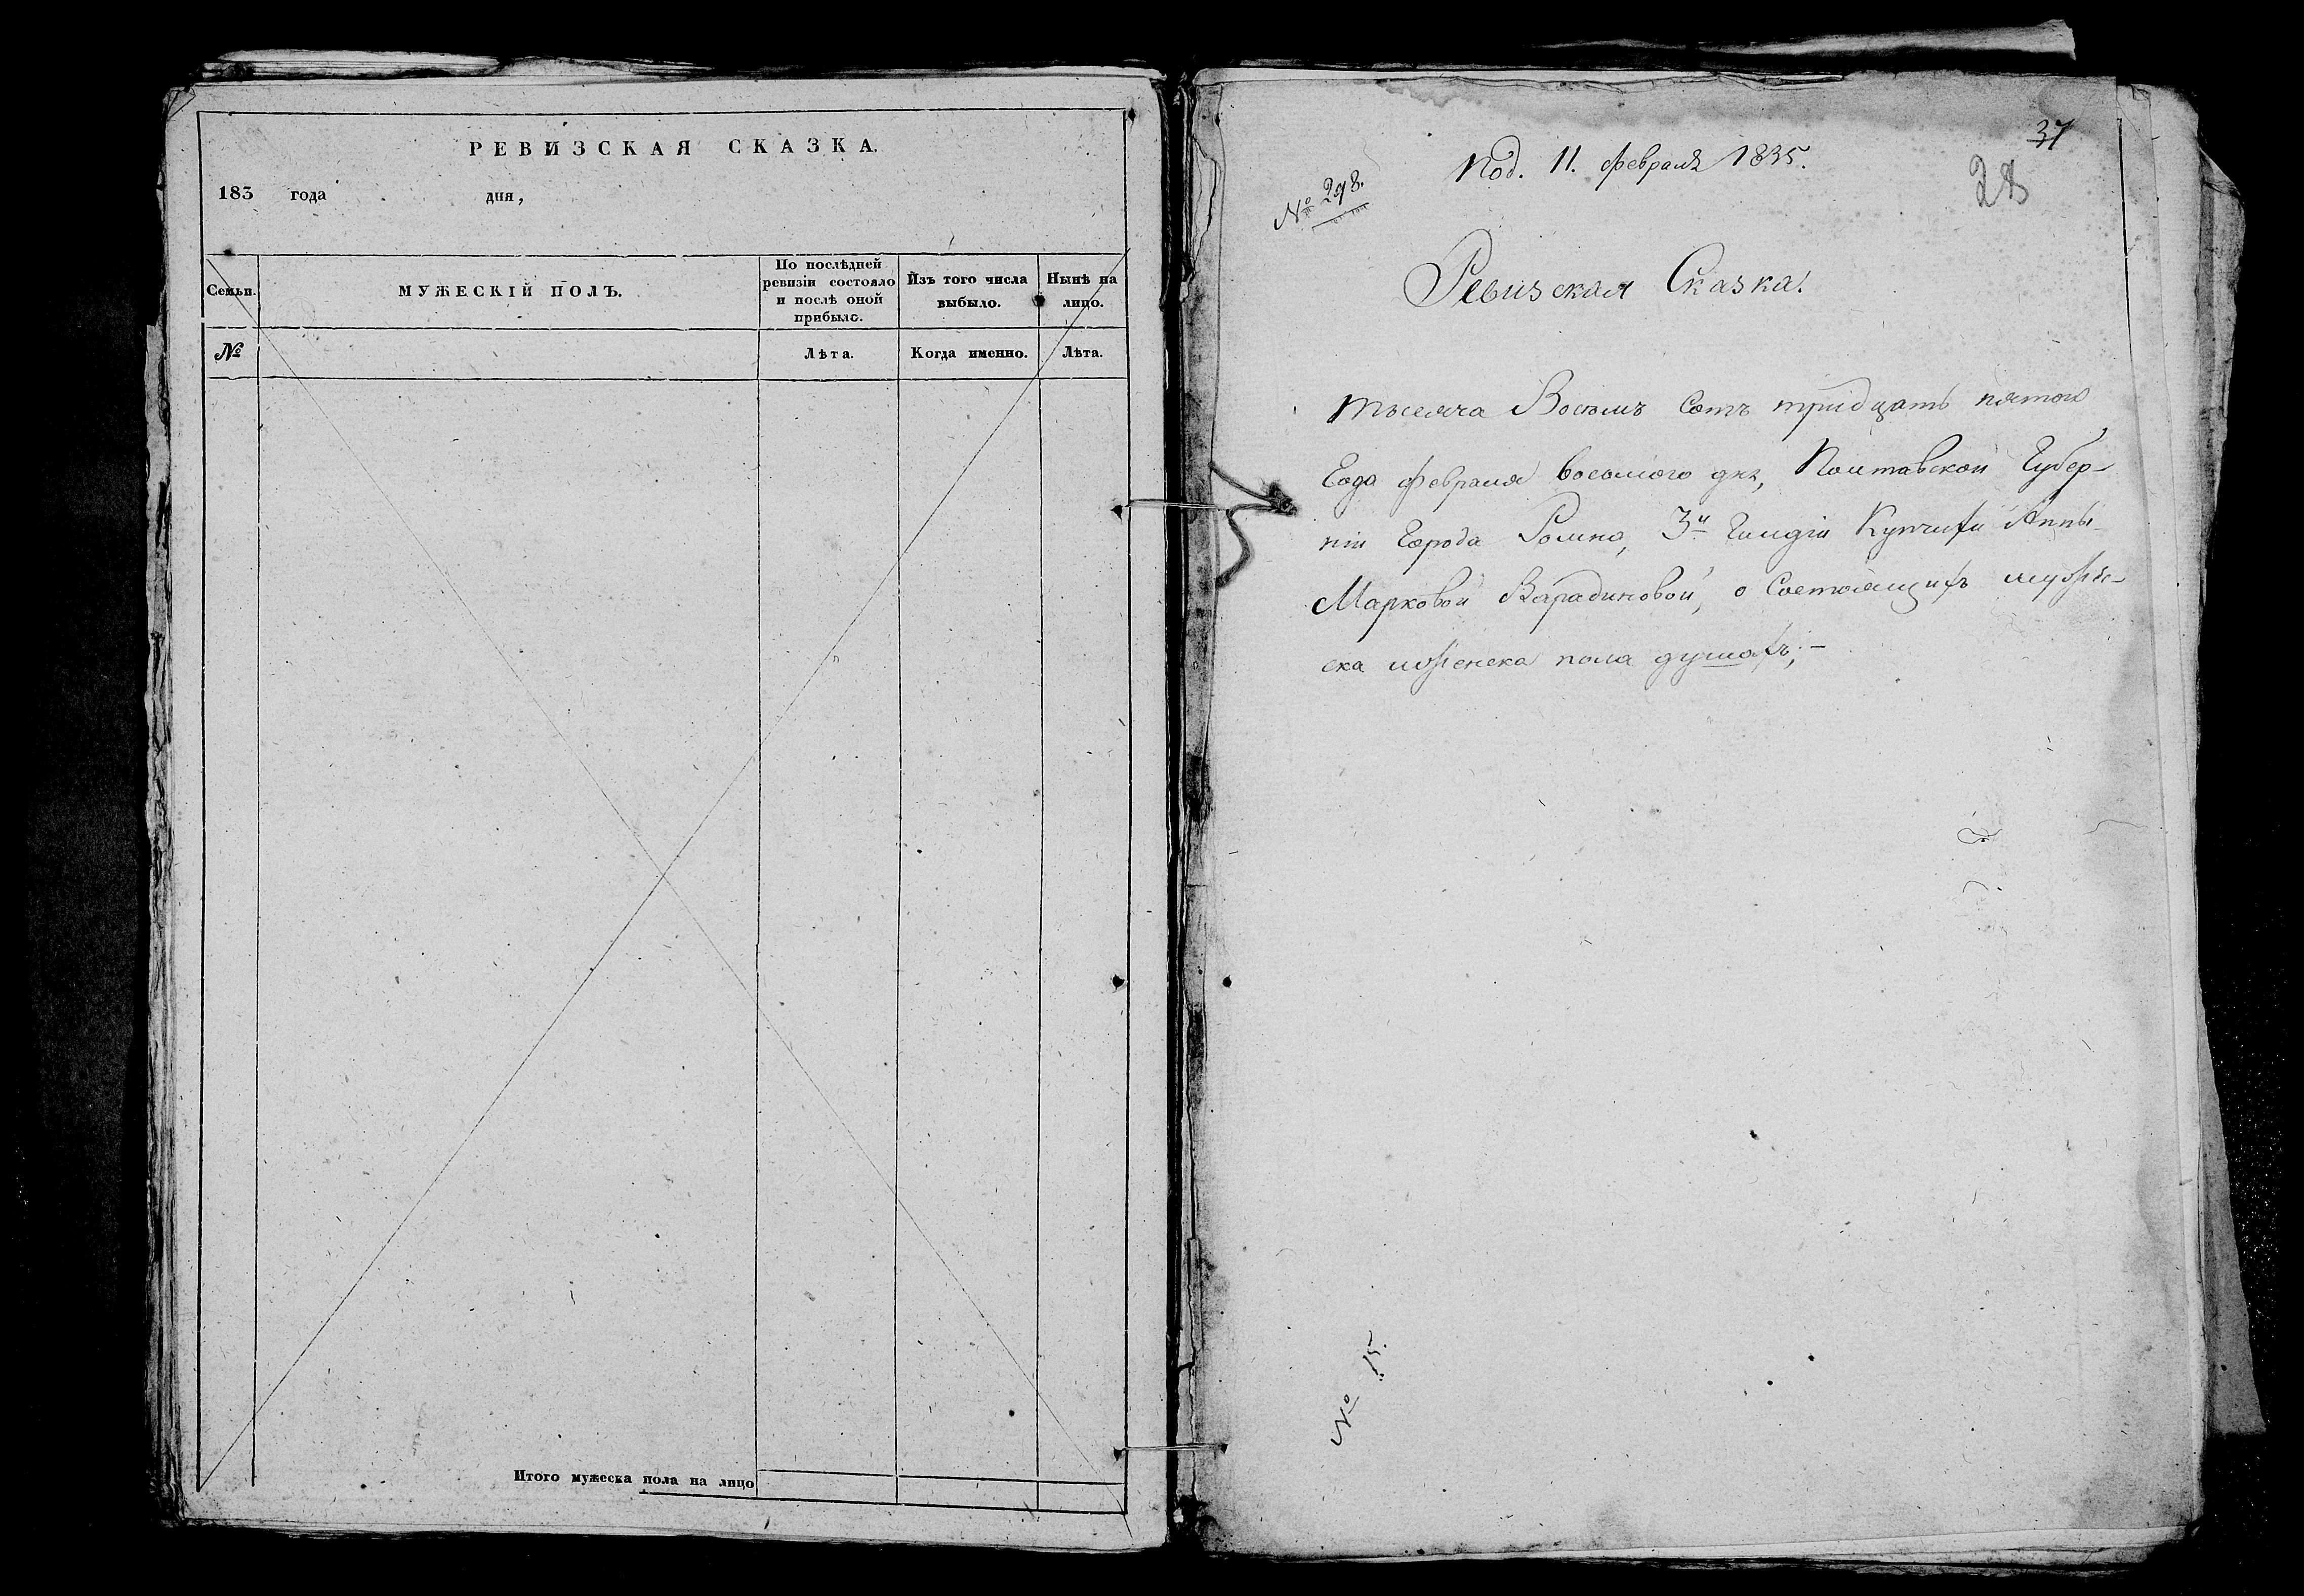 РЕВИЗСКАЯ СКАЗКА.
183 года дня,
Семьи.
МУЖЕСКІЙ ПОЛЪ.
По послѣдней
ревизіи состояло
и послѣ оной
прибыло.
Изъ того числа
выбыло.
Нынѣ на
лицо.
№
Лѣта.
Когда именно.
Лѣта.
Итого мужеска пола на лицо
37
28
Под. 11. февраля 1835.
№ 298.
Ревизская Сказка.
тысяча Восемъ Сотъ тридцать пятого
Года февраля восьмого дня, Полтавской Губер-
ніи Города Ромна, 3й Гильдіи Купчихи Анны
Марковой Варадиновой, о Состоящихъ мужe-
ска иженска пола душахъ;-
№ 15.